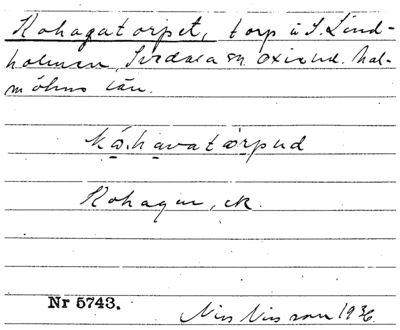 Rohagatorpet, torp u S. Lind-
holmen, Svedala sn Oxie hd. Mal-
möhus län.
Rohagen, ck.
Nr 5743.
Nils Nilsson 1936